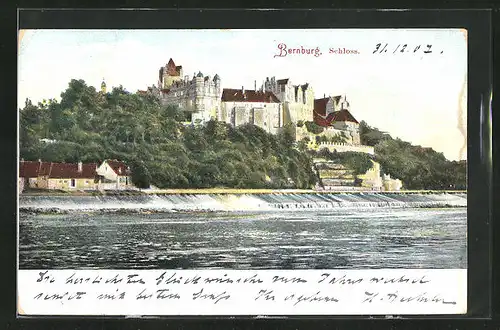 Bernburg. Schloss. 31.12.02
Die herzlichsten Glückwünsche zum Jahreswechsel
sendet mit besten Gruß Ihr ergebener